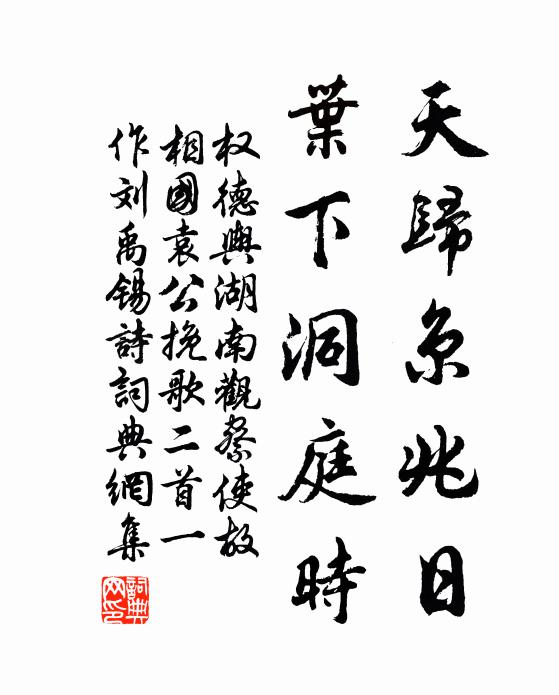 天歸京兆日
葉下洞庭時
权德輿湖南觀察使故
相國袁公挽歌二首一
作刘禹锡詩詞典網集
詞典網印